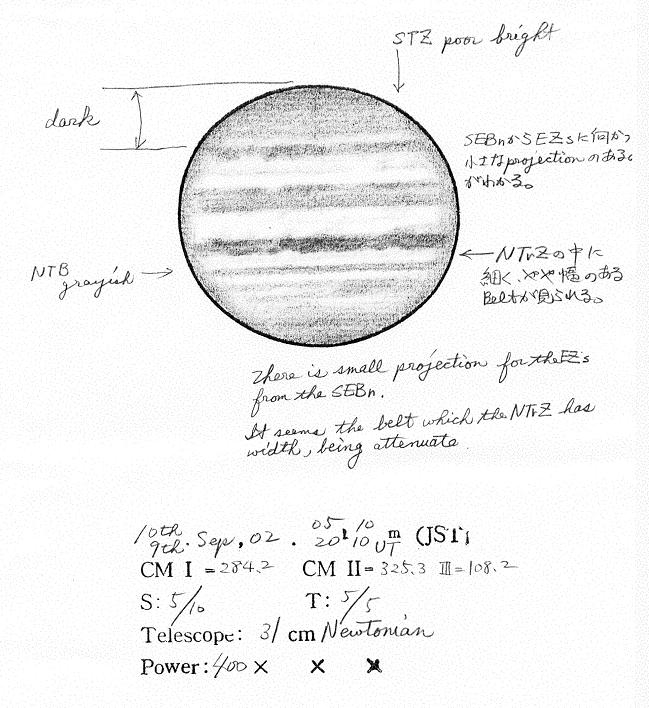 STZ poor bright
dark
SEBnからSEZsに何かつ
小さなprojectionのある
がわかる。
NTrZの中に
細く、やや幅のある
Beltが見られる。
NTB
grayish
There is small projection for the EZs
from the SEBn.
It seems the belt which the NTrZ has
width, being attenuate
10th 05 10
9th. Sep, 02 . 20h 10m UT (JST)
CM I =284.2 CM II=325.3 III=108.2
S: 5/10 T: 5/5
Telescope: 31 cm Newtonian
Power: 400 × × ×